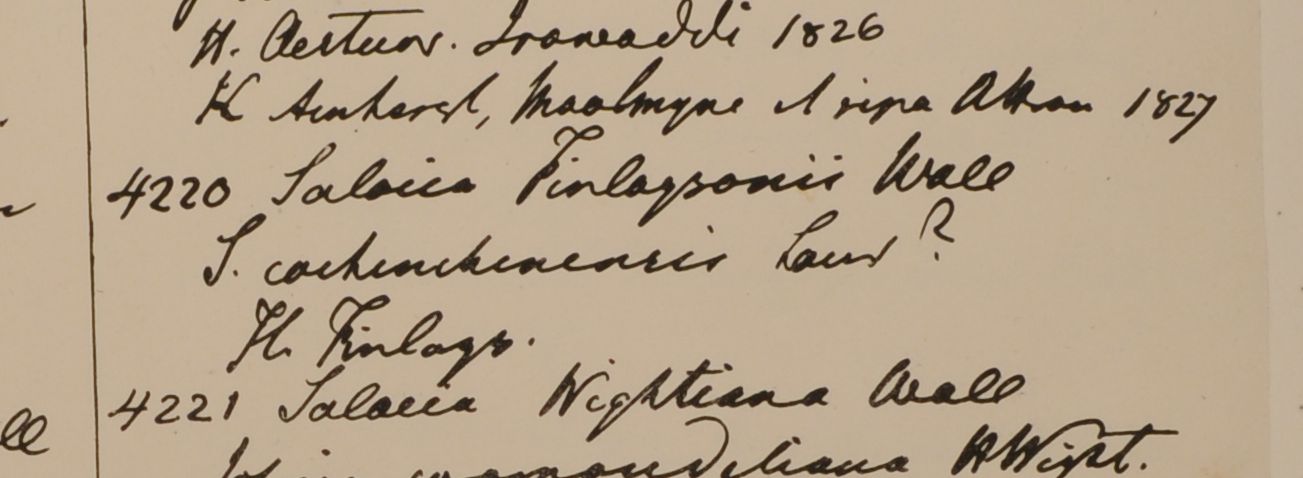 H. Aestuar. Irawaddi 1826
K Amherst, Moolmyne & ripa Attran 1827
4220 Salacia Finlaysonii Wall
S. cochinchinensis Lour?
H. Finlays.
4221 Salacia Wightiana Wall
coromandeliana H Wight.